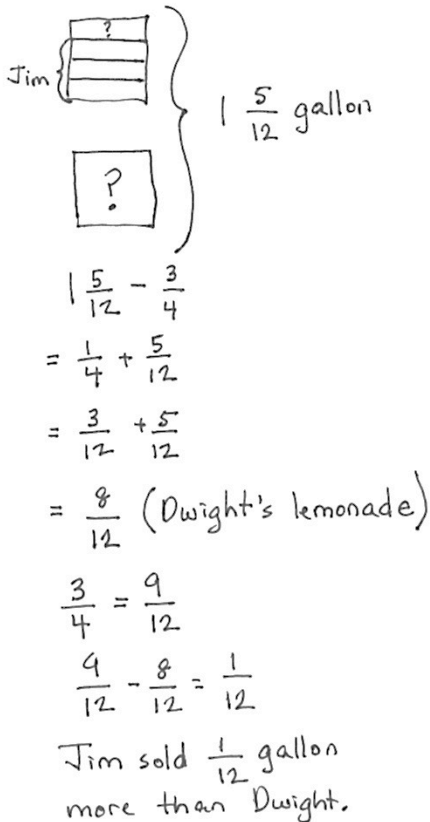 ?
Jim
1 5/12 gallon
?
1 5/12 - 3/4
= 1/4 + 5/12
= 3/12 + 5/12
= 8/12 (Dwight's lemonade)
3/4 = 9/12
9/12 - 8/12 = 1/12
Jim sold 1/12 gallon
more than Dwight.